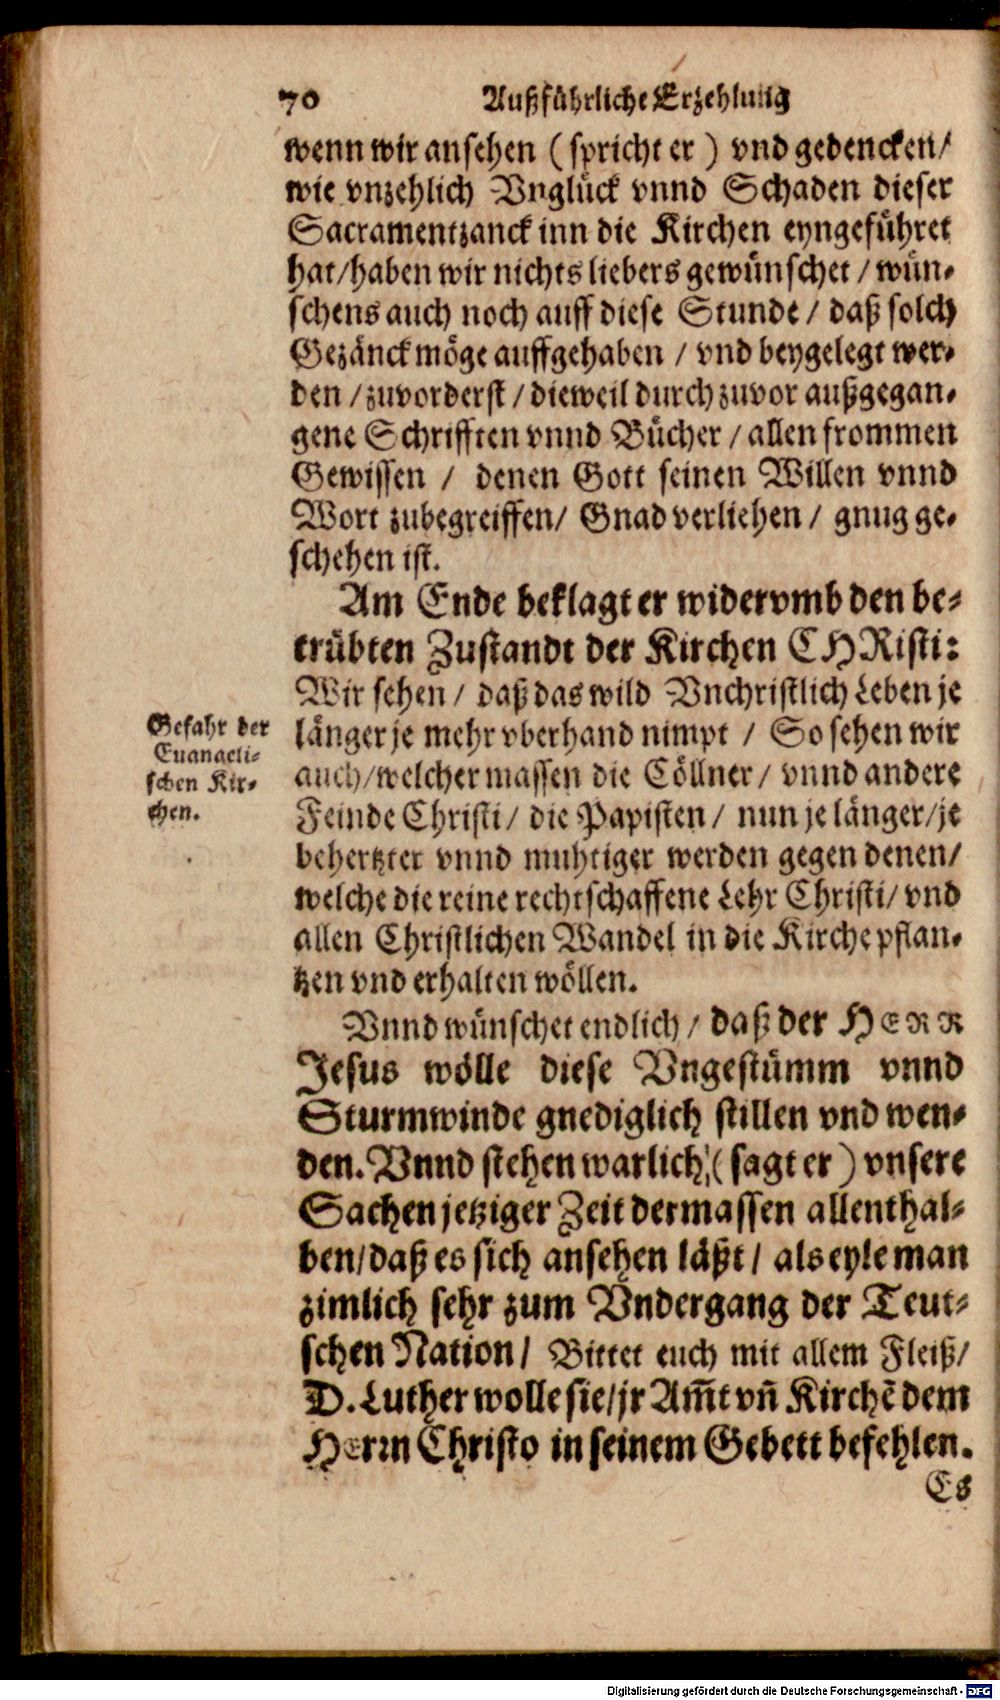 70 Außführliche Erzehlung
wenn wir ansehen ( spricht er ) vnd gedencken/
wie vnzehlich Vnglück vnnd Schaden dieser
Sacramentzanck inn die Kirchen eyngeführet
hat/haben wir nichts liebers gewünschet / wün-
schens auch noch auff diese Stunde / daß solch
Gezänck möge auffgehaben / vnd beygelegt wer-
den / zuvorderst / dieweil durch zuvor außgegan-
gene Schrifften vnnd Bücher / allen frommen
Gewissen / denen Gott seinen Willen vnnd
Wort zubegreiffen/ Gnad verliehen / gnug ge-
schehen ist.
Am Ende beklagt er widervmb den be-
trübten Zustandt der Kirchen CHRisti:
Wir sehen / daß das wild Vnchristlich Leben je
länger je mehr vberhand nimpt / So sehen wir
auch/welcher massen die Cöllner / vnnd andere
Feinde Christi / die Papisten / nun je länger/je
behertzter vnnd muhtiger werden gegen denen/
welche die reine rechtschaffene Lehr Christi/ vnd
allen Christlichen Wandel in die Kirche pflan-
tzen vnd erhalten wöllen.
Gefahr der
Euangeli-
schen Kir-
chen.
Vnnd wünschet endlich / daß der HERR
Jesus wölle diese Vngestümm vnnd
Sturmwinde gnediglich stillen vnd wen-
den. Vnnd stehen warlich ( sagt er ) vnsere
Sachen jetziger Zeit dermassen allenthal-
ben/daß es sich ansehen läßt / als eyle man
zimlich sehr zum Vndergang der Teut-
schen Nation / Bittet euch mit allem Fleiß/
D. Luther wolle sie/jr Am̃t vñ Kirchẽ dem
HErrn Christo in seinem Gebett befehlen.
Es
Digitalisierung gefördert durch die Deutsche Forschungsgemeinschaft - DFG